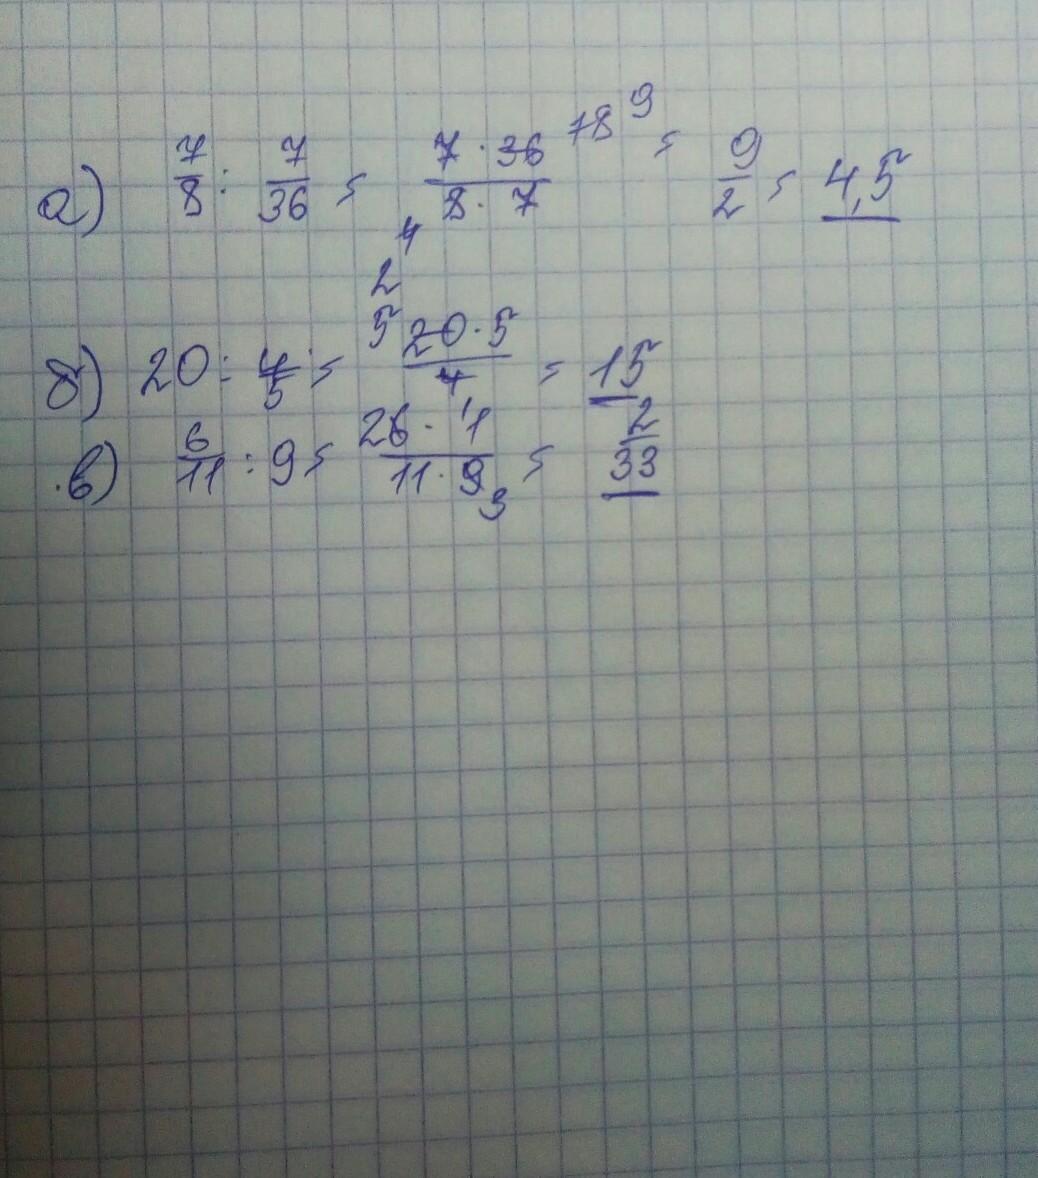 а) 7/8 : 7/36 = 7·36 18 9/8·7 4 2 = 9/2 = 4,5
б) 20 : 4/5 = 5 20·5/4 = 15
в) 6/11 : 9 = 2 6·1/11·9 3 = 2/33